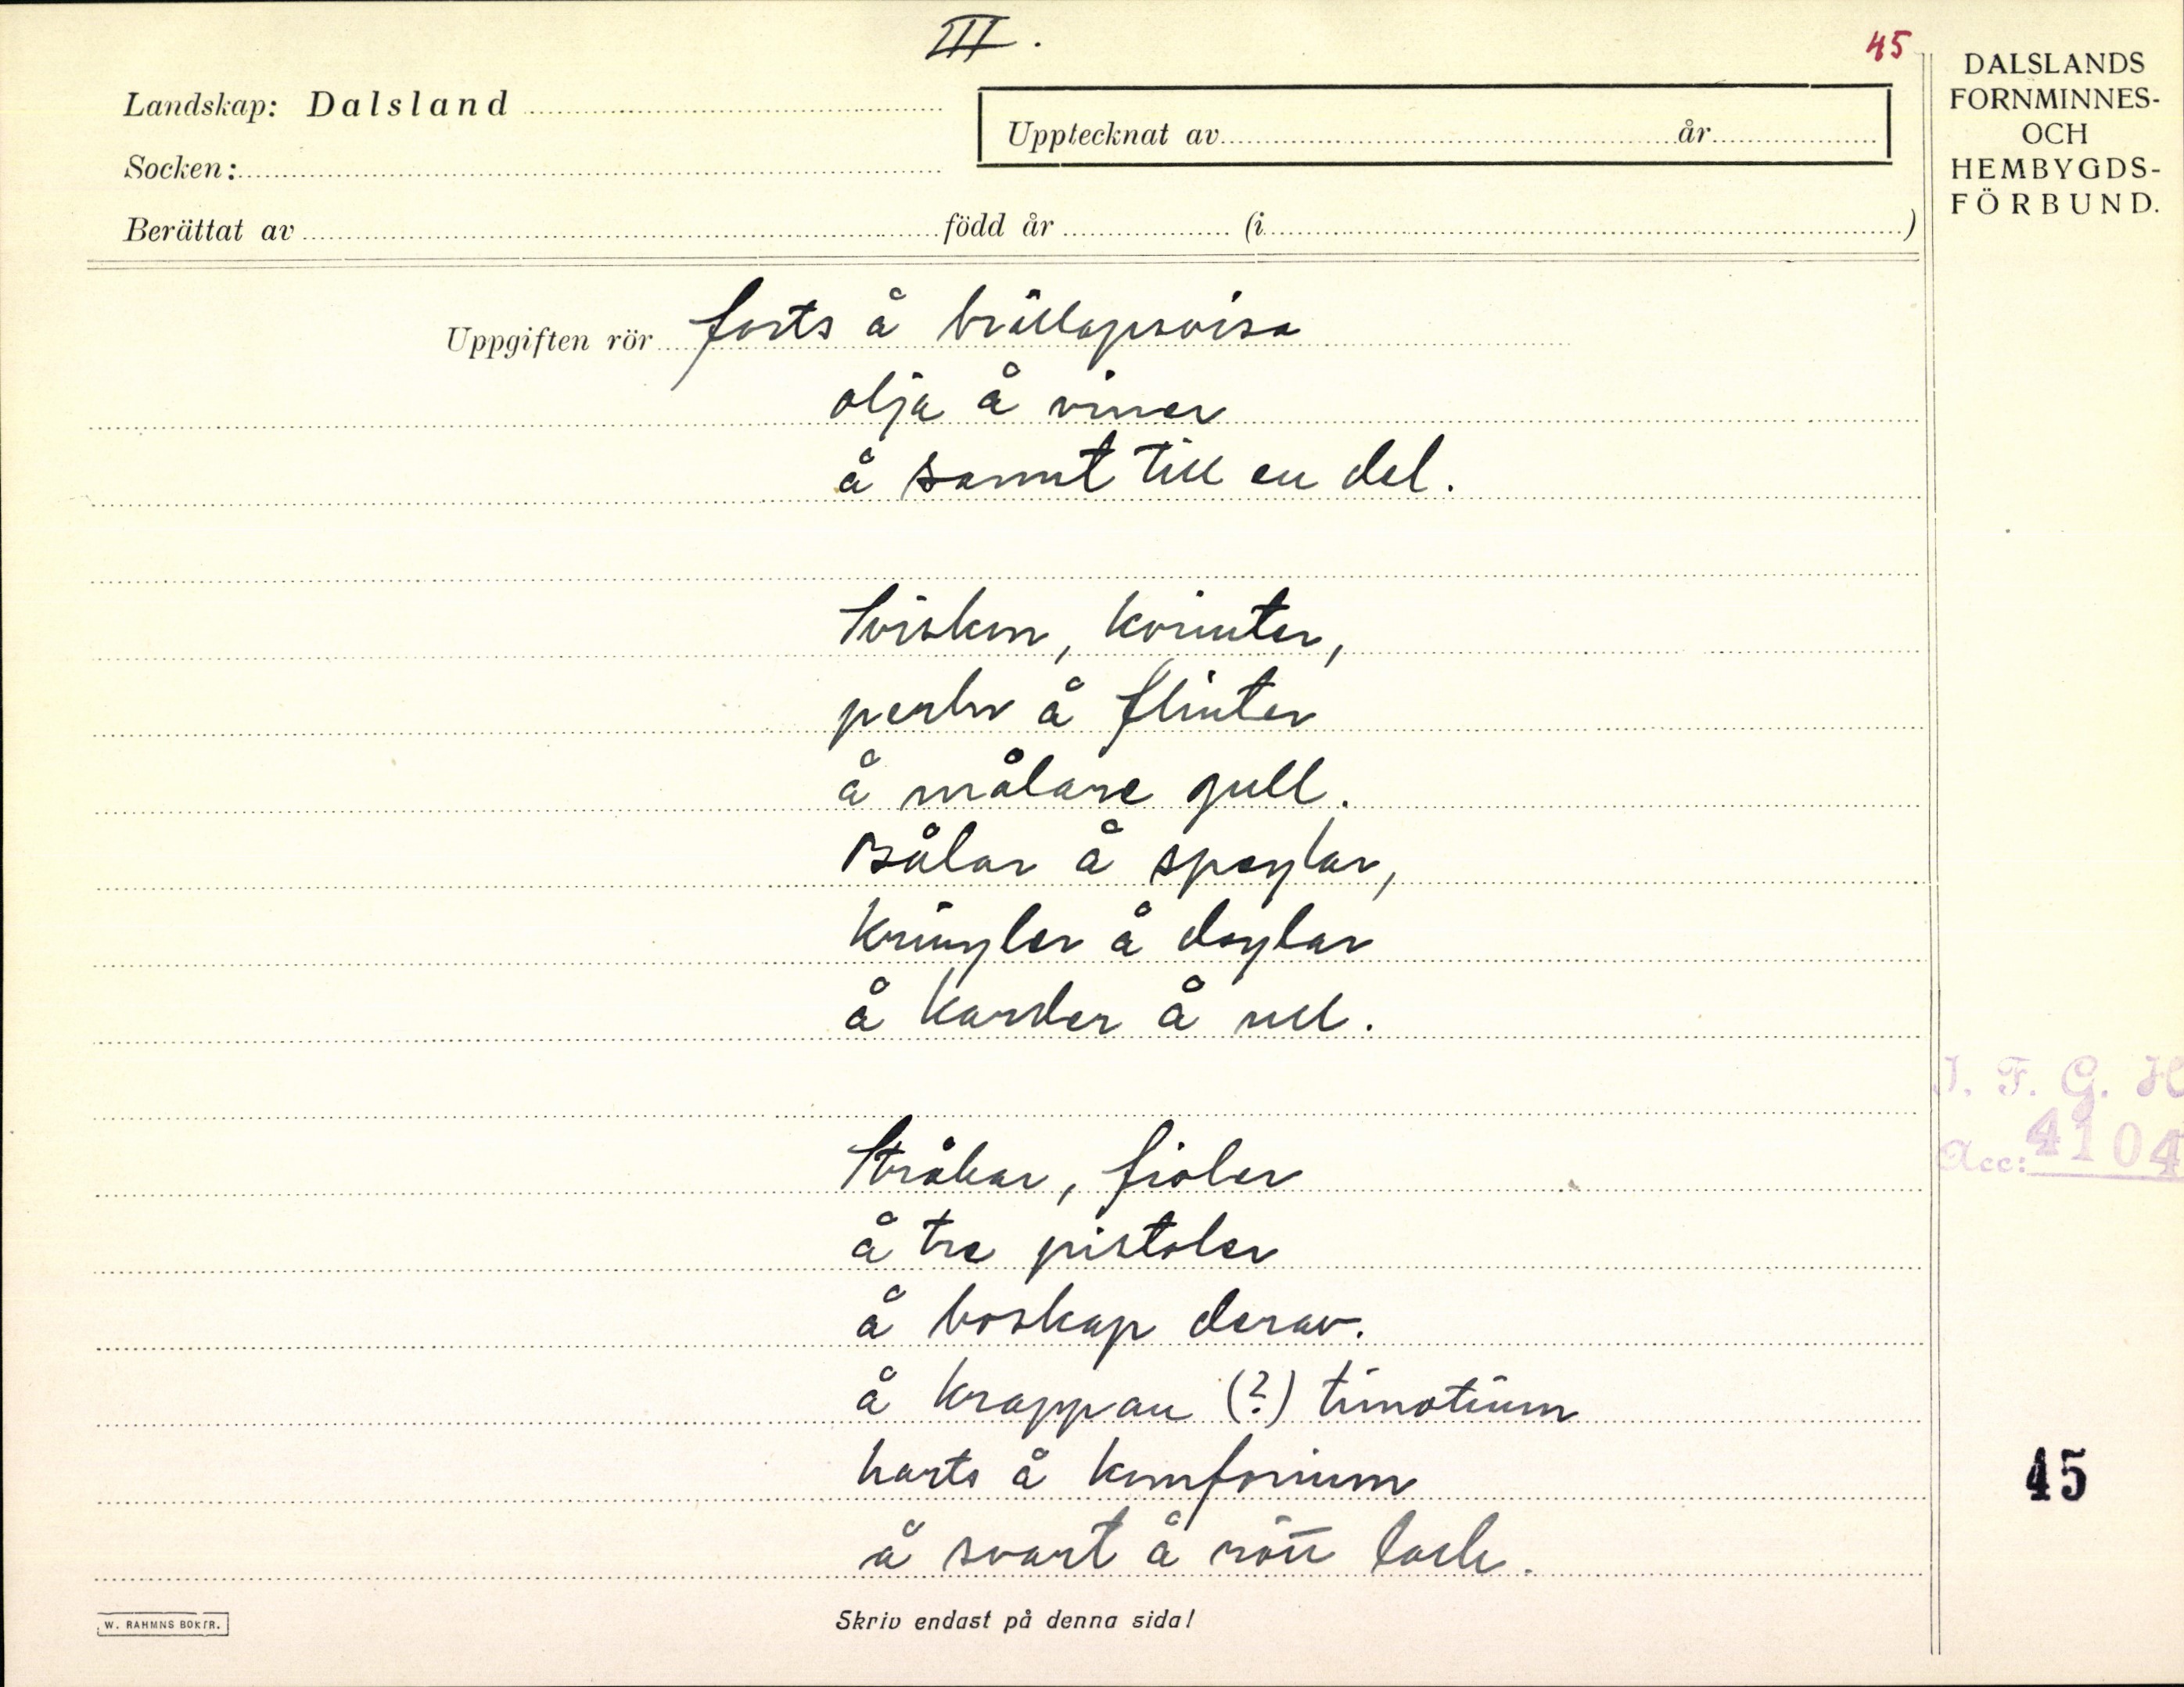 III.
45
DALSLANDS
FORNMINNES-
OCH
HEMBYGDS-
FÖRBUND.
Landskap: Dalsland
Upptecknat av år
Socken:
Berättat av född år (i )
Uppgiften rör forts å bröllopsvisa
olja å viner
å samt till en del.
Svisken, korinter,
perler å flinter
å målare gull.
Bålar å speglar,
kringler å deglar
å karder å ull.
Stråkar, fioler
å tre pistoler
å boskap derav.
å krappan (?) timotium
harts å kumfonium
å svart å rött lack.
I. F. G. H
Acc: 4104
45
W. RAHMNS BOKTR.
Skriv endast på denna sida!